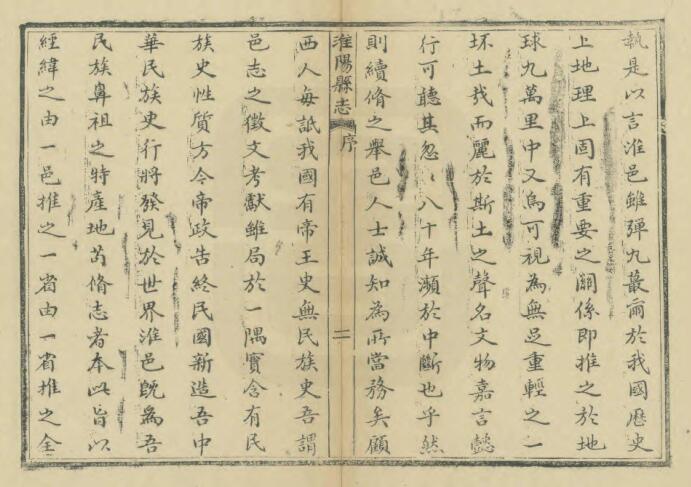 執是以言淮邑雖彈九蕞爾於我國歷史
上地理上固有重要之關係即推之於地
球九萬里中又烏可視為無足重輕之一
坏土哉而麗於斯土之聲名文物嘉言懿
行可聽其忽〻八十年瀕於中斷也乎然
則續脩之舉邑人士誠知為所當務矣顧
淮陽縣志 序 二
西人每詆我國有帝王史無民族史吾謂
邑志之徵文考獻雖局於一隅實含有民
族史性質方今帝政告終民國新造吾中
華民族史行將發見於世界淮邑既為吾
民族鼻祖之特產地苟脩志者本此旨以
經緯之由一邑推之一省由一省推之全